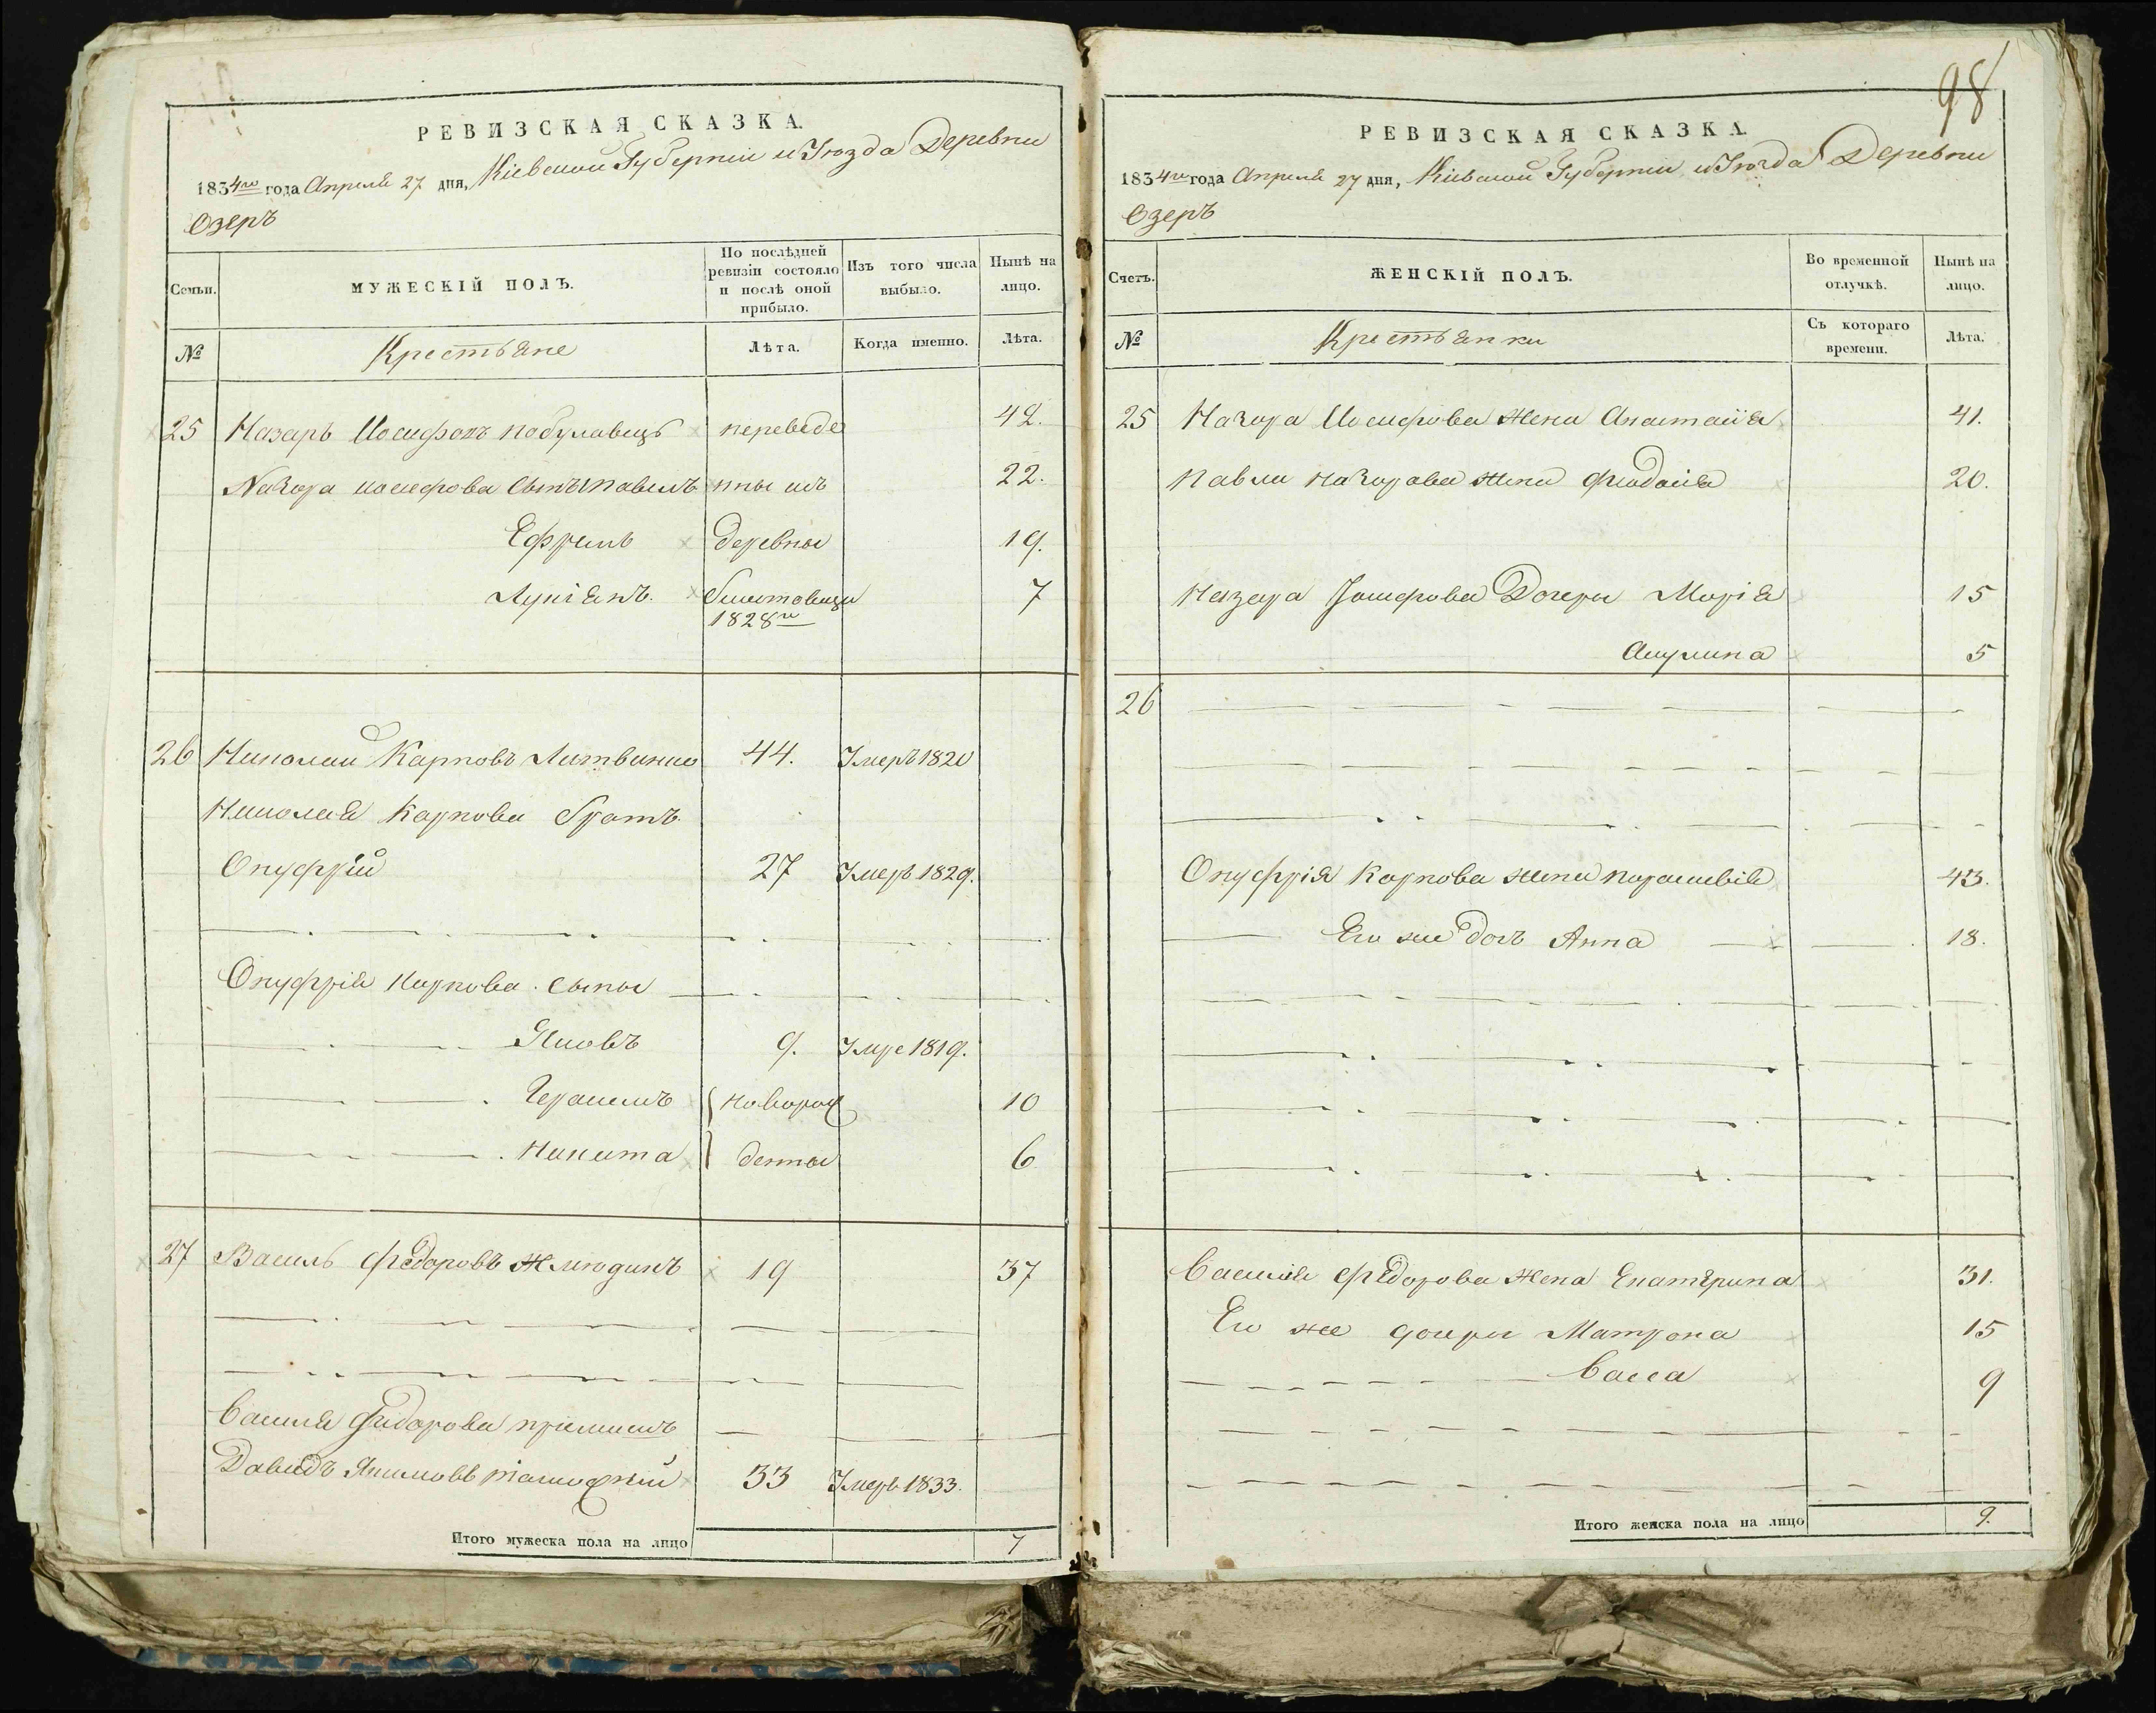 РЕВИЗСКАЯ СКАЗКА.
1834го года Апреля 27 дня, Кіевской Губерніи и Уезда Деревни
Озеръ
Семьи.
МУЖЕСКІЙ ПОЛЪ.
По послѣдней ревизіи состояло и послѣ оной прибыло.
Изъ того числа выбыло.
Нынѣ на лицо.
№
Крестьяне
Лѣта.
Когда именно.
Лѣта.
25 Назаръ Иосифовъ переведе 42.
Назара иосифова Сынъ Павелъ нны изъ 22.
Ефремъ деревны 19.
Лукіянъ. 7
1828го
26 Николай Карповъ 44. Умеръ 1820
Николая Карпова братъ
Онуфрій 27 Умеръ 1829.
Онуфрія Карпова сыны
Яковъ 9. Умре 1819.
Герасимъ новорож 10
Никита денны 6
27 Василь Федоровъ 19 37
Василя Федорова
Давидъ Якимовъ 33 Умеръ 1833.
Итого мужеска пола на лицо 7
98
РЕВИЗСКАЯ СКАЗКА.
1834го года Апреля 27 дня, Кіевской Губерніи и Уезда Деревни
Озеръ
Счетъ.
ЖЕНСКІЙ ПОЛЪ.
Во временной отлучкѣ.
Нынѣ на лицо.
№
Крестьянки
Съ котораго времени.
Лѣта.
25 Назара Иосифова жена Анастасія 41.
Павла Назарова жена Феодосія 20.
Назара Иосифова Дочеры Марія 15
Акулина 5
26
Онуфрія Карпова жена Парасковія 43.
Его же доч Анна 18.
Василія Федорова жена Екатерина 31.
Его же дочеры Матрона 15
Васса 9
Итого женска пола на лицо 9.